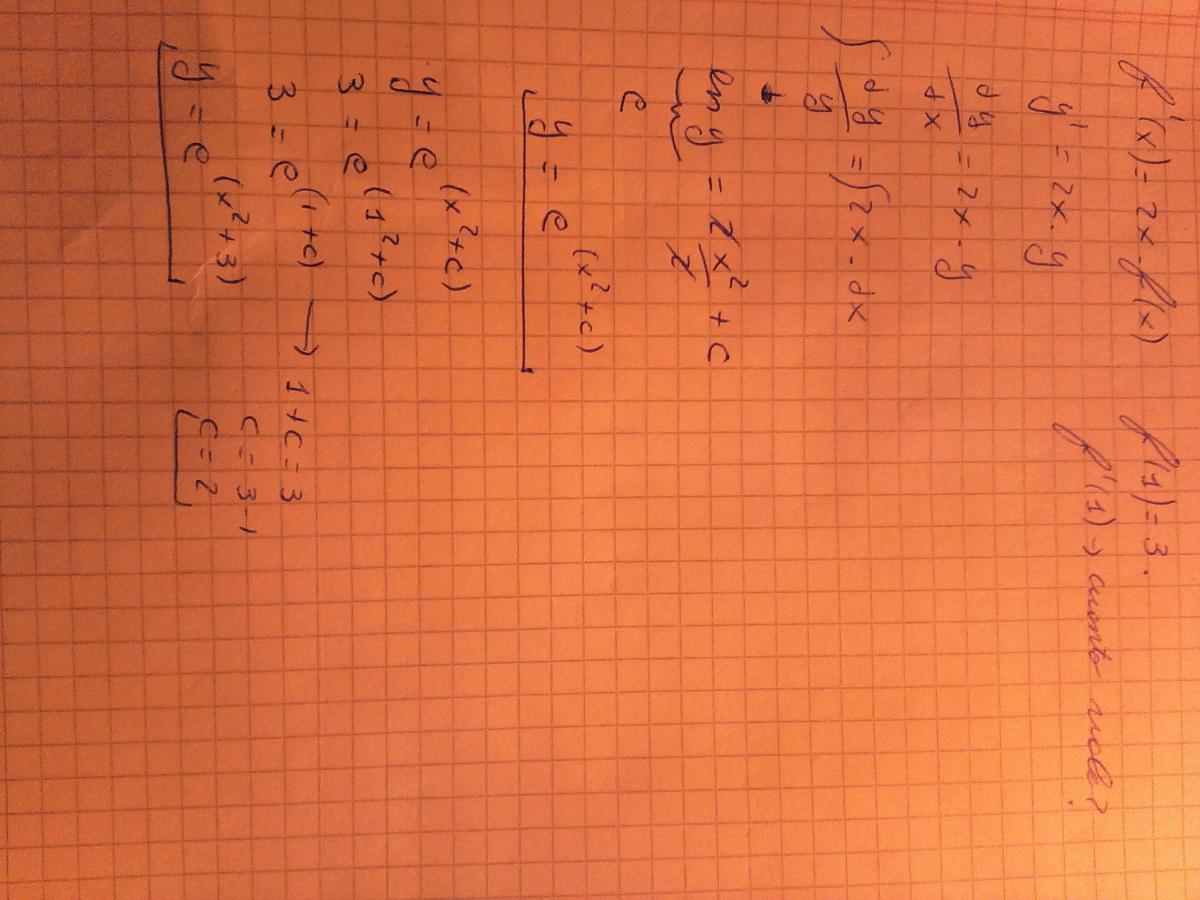 f'(x) = 2x · f(x) f(1) = 3.
y' = 2x · y f'(1) → cuanto vale?
dy/dx = 2x · y
∫ dy/y = ∫ 2x · dx
ln y = 2x²/2 + C
e
y = e^(x²+c)
y = e^(x²+c)
3 = e^(1²+c)
3 = e^(1+c) → 1+c = 3
c = 3-1
y = e^(x²+3) c = 2